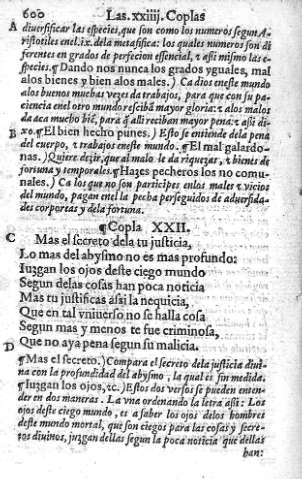 600 Las .xxiiij. Coplas
A diuersificar las especies, que son como los numeros segun A-
ristotiles enel .ix. dela metafisica: los quales numeros son di
ferentes en grados de perfecion essencial, ⁊ assi mismo las e-
species.¶ Dando nos nunca los grados yguales, mal
alos bienes y bien alos males.) Ca dios eneste mundo
alos buenos muchas vezes da trabajos, para que con su pa-
ciencia enel otro mundo resciba mayor gloria: ⁊ alos malos
da aca mucho biē, para q̄ alli reciban mayor pena: ⁊ assi di-
B xo.¶ El bien hecho punes.) Esto se entiende dela pena
del cuerpo, ⁊ trabajos eneste mundo. ¶ El mal galardo-
nas.) Quiere dezir, que al malo le da riquezas, ⁊ bienes de
fortuna y temporales.¶ Hazes pecheros los no comu-
nales.) Ca los que no son participes enlos males ⁊ vicios
del mundo, pagan enel la pecha perseguidos de aduersida-
des corporeas y dela fortuna.
¶Copla XXII.
C Mas el secreto dela tu justicia,
Lo mas del abysmo no es mas profundo:
Iuzgan los ojos deste ciego mundo
Segun delas cosas han poca noticia
Mas tu justificas assi la nequicia,
Que en tal vniuerso no se halla cosa
Segun mas y menos te fue criminosa,
D Que no aya pena segun su malicia.
¶ Mas el secreto.) Compara el secreto dela justicia diui-
na con la profundidad del abysmo, la qual es sin medida.
¶ Iuzgan los ojos, ⁊c.) Estos dos versos se pueden enten-
der en dos maneras. La vna ordenando la letra assi: Los
ojos deste ciego mundo, es a saber los ojos delos hombres
deste mundo mortal, que son ciegos para las cosas y secre-
tos diuinos, juzgan dellas segun la poca noticia que dellas
han: